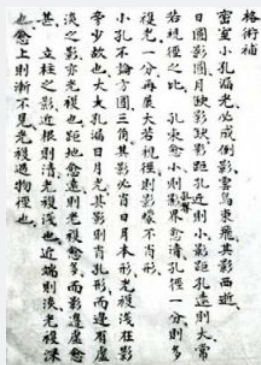 格術補
密室小孔漏光必成倒影雲鳥東飛其影西逝
日圓影圓月缺影缺影距孔近則小影距孔遠則大常
若視徑之比 孔束愈小則影界愈清孔徑一分則多
複光一分再展大若視徑則影不肖形
小孔不論方圓三角其影必肖日月本形光複淺在影
旁少故也大大孔漏日月光其影則肖孔形而邊有虛
淡之影亦光複也距地愈遠則光複愈多而影邊虛愈
甚立柱之影近根則清光複淺也近端則淡光複深
也愈上則漸不見光複過物徑也